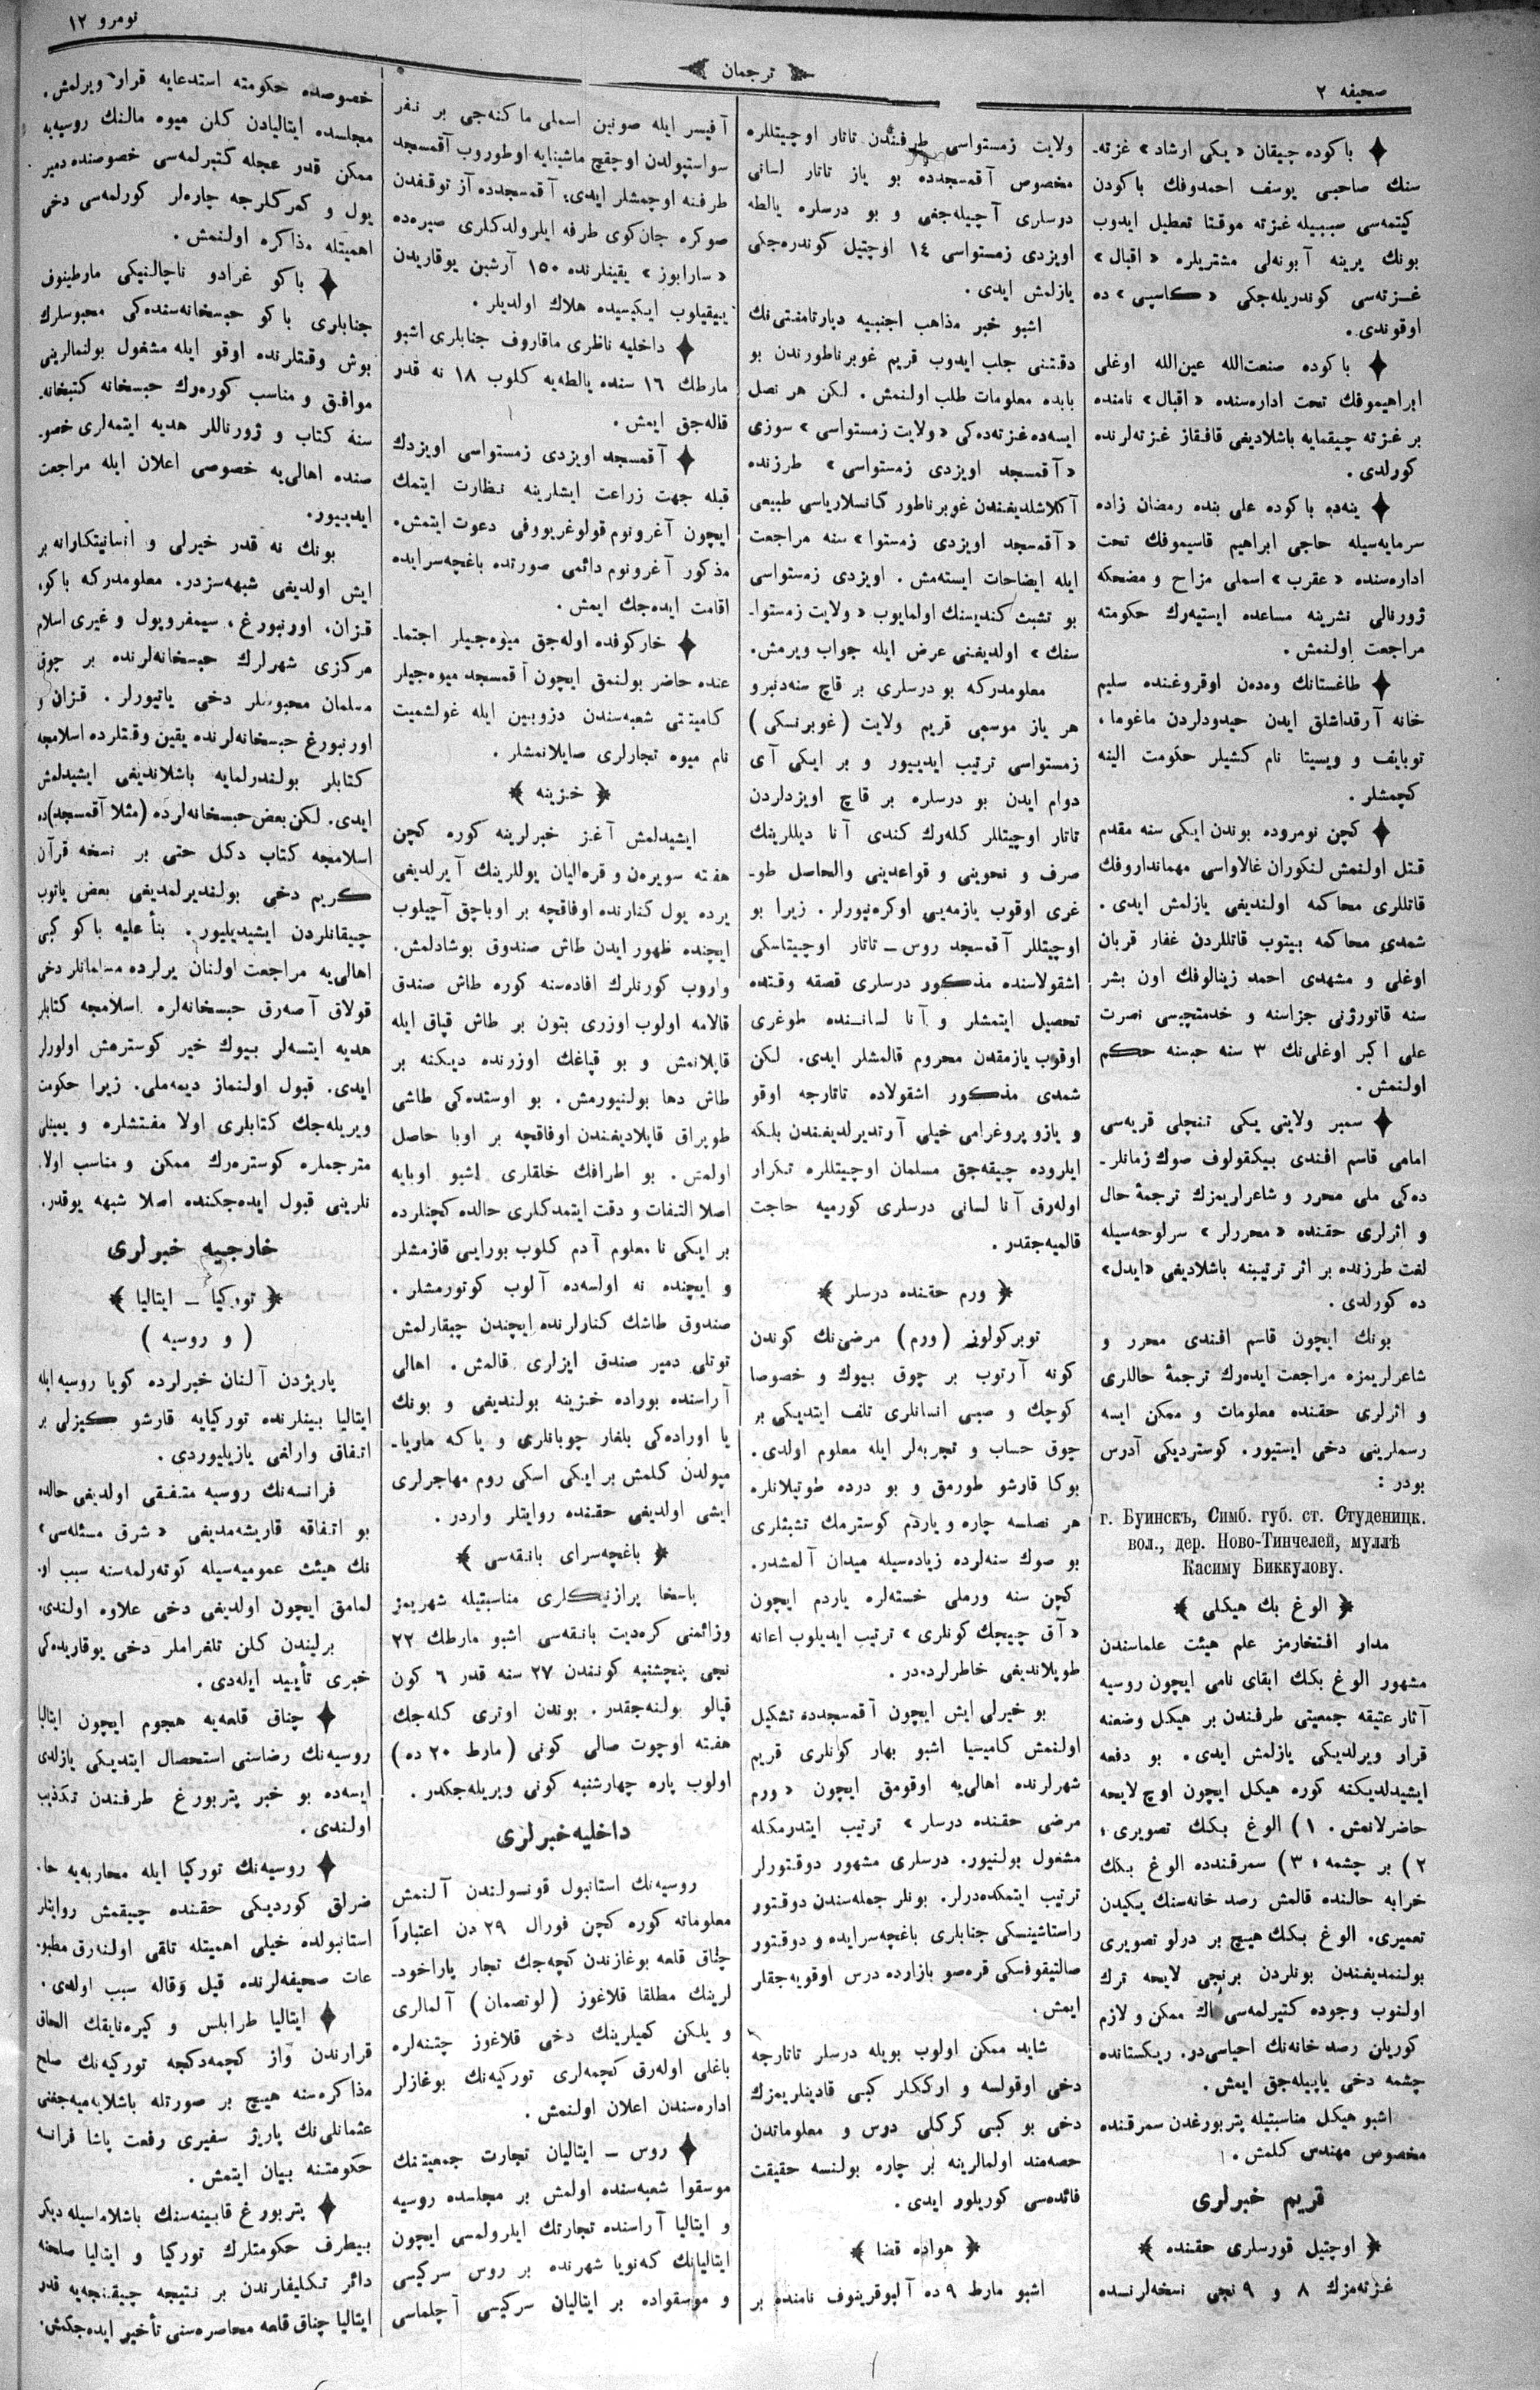 صحیفه ٢
ترجمان
نومرو ١٢
باكوده چیقان «یكی ارشاد» غزته‌ـ
سنك صاحبی یوسف احمدوفك باكودن
كیتمه‌سی سببیله غزته موقتا تعطیل ایدوب
بونك یرینه آبونه‌لی مشتریلره «اقبال»
غزته‌سی كوندریله‌جكی «كاسپی» ده
اوقوندی.
باكوده صنعت‌الله عین‌الله اوغلی
ابراهیموفك تحت اداره‌سنده «اقبال» نامنده
بر غزته چیقمایه باشلادیغی قافقاز غزته‌لرنده
كورلدی.
ینه‌ده باكوده علی بنده رمضان زاده
سرمایه‌سیله حاجی ابراهیم قاسیموفك تحت
اداره‌سنده «عقرب» اسملی مزاح و مضحكه
ژورنالی نشرینه مساعده ایستیه‌رك حكومته
مراجعت اولنمش.
طاغستانك وه‌ده‌ن اوقروغنده سلیم
خانه آرقداشلق ایدن حیدودلردن ماغوما،
توبایف و ویسیتا نام كشیلر حكومت الینه
كچمشلر.
كچن نومروده بوندن ایكی سنه مقدم
قتل اولنمش لنكوران غالاواسی مهمانداروفك
قاتللری محاكمه اولندیغی یازلمش ایدی.
شمدی محاكمه بیتوب قاتللردن غفار قربان
اوغلی و مشهدی احمد زینالوفك اون بشر
سنه قاتورژنی جزاسنه و خدمتچیسی نصرت
علی اكبر اوغلی‌نك ٣ سنه حبسنه حكم
اولنمش.
سمبر ولایتی یكی تنچلی قریه‌سی
امامی قاسم افندی بیكقولوف صوك زمانلرـ
ده‌كی ملی محرر و شاعرلریمزك ترجمهٔ حال
و اثرلری حقنده «محررلر» سرلوحه‌سیله
لغت طرزنده بر اثر ترتیبنه باشلادیغی «ایدل»
ده كورلدی.
بونك ایچون قاسم افندی محرر و
شاعرلریمزه مراجعت ایده‌رك ترجمهٔ حاللری
و اثرلری حقنده معلومات و ممكن ایسه
رسملرینی دخی ایستیور. كوستردیكی آدرس
بودر:
г. Буинскъ, Симб. губ. ст. Студеницк.
вол., дер. Ново-Тинчелей, муллѣ
Касиму Биккулову.
﴿ الوغ بك هیكلی ﴾
مدار افتخارمز علم هیئت علماسندن
مشهور الوغ بكك ابقای نامی ایچون روسیه
آثار عتیقه جمعیتی طرفندن بر هیكل وضعنه
قرار ویرلدیكی یازلمش ایدی. بو دفعه
ایشیدلدیكنه كوره هیكل ایچون اوچ لایحه
حاضرلانمش. ١) الوغ بكك تصویری؛
٢) بر چشمه؛ ٣) سمرقندده الوغ بكك
خرابه حالنده قالمش رصد خانه‌سنك یكیدن
تعمیری. الوغ بكك هیچ بر درلو تصویری
بولنمدیغندن بونلردن برنجی لایحه ترك
اولنوب وجوده كتیرلمه‌سی اك ممكن و لازم
كوریلن رصد خانه‌نك احیاسی‌در. ریكستانده
چشمه دخی یاپیله‌جق ایمش.
اشبو هیكل مناسبتیله پتربورغدن سمرقنده
مخصوص مهندس كلمش.
قریم خبرلری
﴿ اوچتیل قورسلری حقنده ﴾
غزته‌مزك ٨ و ٩ نجی نسخه‌لرنسده
ولایت زمستواسی طرفندن تاتار اوچیتللره
مخصوص آقمسجدده بو یاز تاتار لسانی
درسلری آچیله‌جغی و بو درسلره یالطه
اویزدی زمستواسی ١٤ اوچتیل كوندره‌جكی
یازلمش ایدی.
اشبو خبر مذاهب اجنبیه دپارتامنتی‌نك
دقتنی جلب ایدوب قریم غوبرناطورندن بو
بابده معلومات طلب اولنمش. لكن هر نصل
ایسه‌ده غزته‌ده‌كی «ولایت زمستواسی» سوزی
«آقمسجد اویزدی زمستواسی» طرزنده
آكلاشلدیغندن غوبرناطور كانسلاریاسی طبیعی
«آقمسجد اویزدی زمستوا»سنه مراجعت
ایله ایضاحات ایسته‌مش. اویزدی زمستواسی
بو تشبث كندیسنك اولمایوب «ولایت زمستواـ
سنك» اولدیغنی عرض ایله جواب ویرمش.
معلومدركه بو درسلری بر قاچ سنه‌دنبرو
هر یاز موسمی قریم ولایت (غوبرنسكی)
زمستواسی ترتیب ایدییور و بر ایكی آی
دوام ایدن بو درسلره بر قاچ اویزدلردن
تاتار اوچیتللر كله‌رك كندی آنا دیللرینك
صرف و نحوینی و قواعدینی والحاصل طوـ
غری اوقوب یازمه‌یی اوكره‌نیورلر. زیرا بو
اوچیتللر آقمسجد روس ـ تاتار اوچیتلسكی
اشقولاسنده مذكور درسلری قصقه وقتده
تحصیل ایتمشلر و آنا لسانسنده طوغری
اوقوب یازمقدن محروم قالمشلر ایدی. لكن
شمدی مذكور اشقولاده تاتارجه اوقو
و یازو پروغرامی خیلی آرتدیرلدیغندن بلكه
ایلروده چیقه‌جق مسلمان اوچیتللره تكرار
اوله‌رق آنا لسانی درسلری كورمیه حاجت
قالمیه‌جقدر.
﴿ ورم حقنده درسلر ﴾
توبركولوز (ورم) مرضی‌نك كوندن
كونه آرتوب بر چوق بیوك و خصوصا
كوچك و صبی انسانلری تلف ایتدیكی بر
چوق حساب و تجربه‌لر ایله معلوم اولدی.
بوكا قارشو طورمق و بو درده طوتیلانلره
هر نصلسه چاره و یاردم كوسترمك تشبثلری
بو صوك سنه‌لرده زیاده‌سیله میدان آلمشدر.
كچن سنه ورملی خسته‌لره یاردم ایچون
«آق چیچك كونلری» ترتیب ایدیلوب اعانه
طوپلاندیغی خاطرلرده‌در.
بو خیرلی ایش ایچون آقمسجدده تشكیل
اولنمش كامیسیا اشبو بهار كونلری قریم
شهرلرنده اهالی‌یه اوقومق ایچون «ورم
مرضی حقنده درسلر» ترتیب ایتدرمكله
مشغول بولنیور. درسلری مشهور دوقتورلر
ترتیب ایتمكده‌درلر. بونلر جمله‌سندن دوقتور
راستاشینسكی جنابلری باغچه‌سرایده و دوقتور
صالتیقوفسكی قره‌صو بازارده درس اوقویه‌جقلر
ایمش.
شاید ممكن اولوب بویله درسلر تاتارجه
دخی اوقولسه و ارككلر كبی قادینلریمزك
دخی بو كبی كركلی درس و معلوماتدن
حصه‌مند اولمالرینه بر چاره بولنسه حقیقت
فائده‌سی كوریلور ایدی.
﴿ هواده قضا ﴾
اشبو مارط ٩ ده آلیوقرینوف نامنده بر
آفیسر ایله صونین اسملی ماكنه‌جی بر نفر
سواستپولدن اوچقچ ماشینایه اوطوروب آقمسجد
طرفنه اوچمشلر ایدی؛ آقمسجدده آز توقفدن
صوكره جان‌كوی طرفه ایلرولدكلری صیره‌ده
«سارابوز» یقینلرنده ١٥٠ آرشین یوقاریدن
ییقیلوب ایكیسیده هلاك اولدیلر.
داخلیه ناظری ماقاروف جنابلری اشبو
مارطك ١٦ سنده یالطه‌یه كلوب ١٨ نه قدر
قاله‌جق ایمش.
آقمسجد اویزدی زمستواسی اویزدك
قبله جهت زراعت ایشلرینه نظارت ایتمك
ایچون آغرونوم قولوغربووفی دعوت ایتمش.
مذكور آغرونوم دائمی صورتده باغچه‌سرایده
اقامت ایده‌جك ایمش.
خاركوفده اوله‌جق میوه‌جیلر اجتماـ
عنده حاضر بولنمق ایچون آقمسجد میوه‌جیلر
كامیتتی شعبه‌سندن دزوبین ایله غولشمیت
نام میوه تجارلری صایلانمشلر.
﴿ خزینه ﴾
ایشیدلمش آغز خبرلرینه كوره كچن
هفته سویره‌ن و قره‌الیان یوللرینك آیرلدیغی
یرده یول كنارنده اوفاقچه بر اوباجق آچیلوب
ایچنده ظهور ایدن طاش صندوق بوشادلمش.
واروب كورنلرك افاده‌سنه كوره طاش صندق
قالامه اولوب اوزری بتون بر طاش قپاق ایله
قاپلانمش و بو قپاغك اوزرنده دیكنه بر
طاش دها بولنیورمش. بو اوستده‌كی طاشی
طوپراق قاپلادیغندن اوفاقچه بر اوبا حاصل
اولمش. بو اطرافك خلقلری اشبو اوبایه
اصلا التفات و دقت ایتمدكلری حالده كچنلرده
بر ایكی نا معلوم آدم كلوب بورایی قازمشلر
و ایچنده نه اولسه‌ده آلوب كوتورمشلر.
صندوق طاشك كنارلرنده ایچندن چیقارلمش
توتلی دمیر صندق ایزلری قالمش. اهالی
آراسنده بوراده خزینه بولندیغی و بونك
یا اوراده‌كی بلغار چوبانلری و یاكه ماریاـ
مپولدن كلمش بر ایكی اسكی روم مهاجرلری
ایشی اولدیغی حقنده روایتلر واردر.
﴿ باغچه‌سرای بانقه‌سی ﴾
پاسخا پرازنیكلری مناسبتیله شهریمز
وزائمنی كره‌دیت بانقه‌سی اشبو مارطك ٢٢
نجی پنچشنبه كوننندن ٢٧ سنه قدر ٦ كون
قپالو بولنه‌جقدر. بوندن اوتری كله‌جك
هفته اوچوت صالی كونی (مارط ٢٠ ده)
اولوب پاره چهارشنبه كونی ویریله‌جكدر.
داخلیه خبرلری
روسیه‌نك استانبول قونسولندن آلنمش
معلوماته كوره كچن فورال ٢٩ دن اعتباراً
چناق قلعه بوغازندن كچه‌جك تجار پاراخودـ
لرینك مطلقا قلاغوز (لوتصمان) آلمالری
و یلكن كمیلرینك دخی قلاغوز چتنه‌لره
باغلی اوله‌رق كچمه‌لری توركیه‌نك بوغازلر
اداره‌سندن اعلان اولنمش.
روس ـ ایتالیان تجارت جمعیتنك
موسقوا شعبه‌سنده اولمش بر مجلسده روسیه
و ایتالیا آراسنده تجارتك ایلرولمسی ایچون
ایتالیانك كه‌نویا شهرنده بر روس سركیسی
و موسقواده بر ایتالیان سركیسی آچلماسی
خصوصده حكومته استدعایه قرار ویرلمش.
مجلسده ایتالیادن كلن میوه مالنك روسیه‌یه
ممكن قدر عجله كتیرلمه‌سی خصوصنده دمیر
یول و كمركلرجه چاره‌لر كورلمه‌سی دخی
اهمیتله مذاكره اولنمش.
باكو غرادو ناچالنیكی مارطینوف
جنابلری باكو حبسخانه‌سنده‌كی محبوسلرك
بوش وقتلرنده اوقو ایله مشغول بولنمالرینی
موافق و مناسب كوره‌رك حبسخانه كتبخانه‌ـ
سنه كتاب و ژورناللر هدیه ایتمه‌لری خصوـ
صنده اهالی‌یه خصوصی اعلان ایله مراجعت
ایدییور.
بونك نه قدر خیرلی و انسانیتكارانه بر
ایش اولدیغی شبهه‌سزدر. معلومدركه باكو،
قزان، اورنبورغ، سیمفروپول و غیری اسلام
مركزی شهرلرك حبسخانه‌لرنده بر چوق
مسلمان محبوسلر دخی یاتیورلر. قزان و
اورنبورغ حبسخانه‌لرنده یقین وقتلرده اسلامجه
كتابلر بولندرلمایه باشلاندیغی ایشیدلمش
ایدی. لكن بعض حبسخانه‌لرده (مثلا آقمسجد)ده
اسلامجه كتاب دكل حتی بر نسخه قرآن
كریم دخی بولندیرلمدیغی بعض یاتوب
چیقانلردن ایشیدیلیور. بنأ علیه باكو كبی
اهالی‌یه مراجعت اولنان یرلرده مسلمانلر دخی
قولاق آصه‌رق حبسخانه‌لره اسلامجه كتابلر
هدیه ایتسه‌لر بیوك خیر كوسترمش اولورلر
ایدی. قبول اولنماز دیمه‌ملی. زیرا حكومت
ویریله‌جك كتابلری اولا مفتشلره و یمینلی
مترجملره كوستره‌رك ممكن و مناسب اولاـ
نلرینی قبول ایده‌جكنده اصلا شبهه یوقدر.
خارجیه خبرلری
﴿ توركیا ـ ایتالیا ﴾
( و روسیه )
پاریژدن آلنان خبرلرده كویا روسیه ایله
ایتالیا بینلرنده توركیایه قارشو كیزلی بر
اتفاق وارلغی یازیلیوردی.
فرانسه‌نك روسیه متفقی اولدیغی حالده
بو اتفاقه قاریشه‌مدیغی «شرق مسئله‌سی»
نك هیئت عمومیه‌سیله كوته‌رلمه‌سنه سبب اوـ
لمامق ایچون اولدیغی دخی علاوه اولندی.
برلیندن كلن تلغراملر دخی یوقاریده‌كی
خبری تأیید ایله‌دی.
چناق قلعه‌یه هجوم ایچون ایتالیا
روسیه‌نك رضاسنی استحصال ایتدیكی یازلدی
ایسه‌ده بو خبر پتربورغ طرفندن تكذیب
اولندی.
روسیه‌نك توركیا ایله محاربه‌یه حاـ
ضرلق كوردیكی حقنده چیقمش روایتلر
استانبولده خیلی اهمیتله تلقی اولنه‌رق مطبوـ
عات صحیفه‌لرنده قیل وقاله سبب اولدی.
ایتالیا طرابلس و كیره‌نایقك الحاق
قرارندن واز كچمه‌دكچه توركیه‌نك صلح
مذاكره‌سنه هیچ بر صورتله باشلایه‌میه‌جغنی
عثمانلی‌نك پاریژ سفیری رفعت پاشا فرانسه
حكومتنه بیان ایتمش.
پتربورغ قابینه‌سنك باشلاماسیله دیكر
بیطرف حكومتلرك توركیا و ایتالیا صلحنه
دائر تكلیفلرندن بر نتیجه چیقنجه‌یه قدر
ایتالیا چناق قلعه محاصره‌سنی تأخیر ایده‌جكمش.